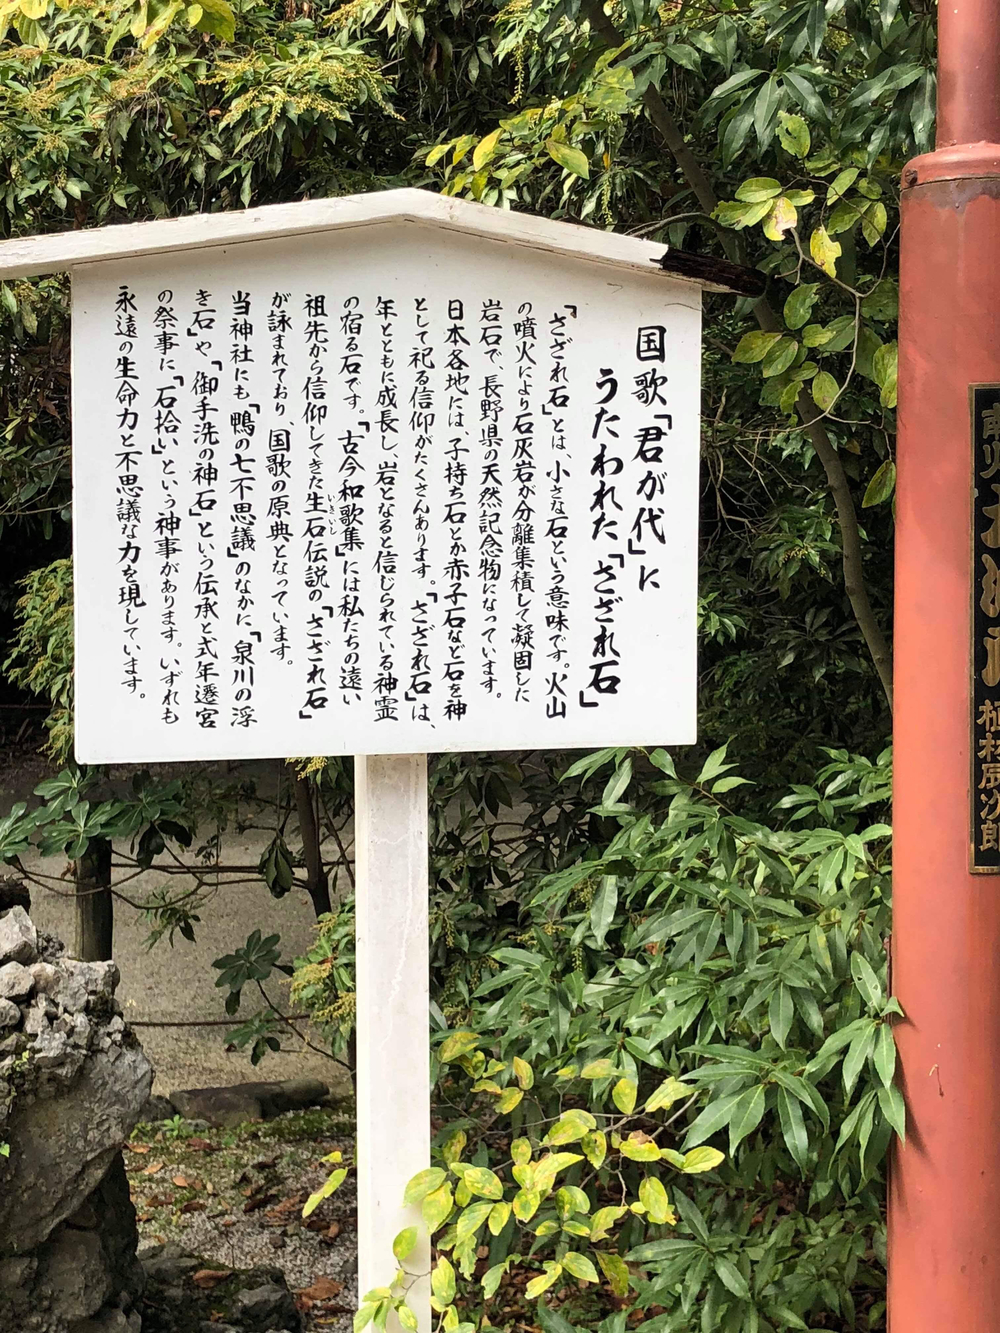 国歌「君が代」に
うたわれた「さざれ石」
「さざれ石」とは、小さな石という意味です。火山
の噴火により石灰岩が分離集積して凝固した
岩石で、長野県の天然記念物になっています。
日本各地には、子持ち石とか赤子石など石を神
として祀る信仰がたくさんあります。「さざれ石」は、
年とともに成長し、岩となると信じられている神霊
の宿る石です。「古今和歌集」には私たちの遠い
祖先から信仰してきた生石伝説の「さざれ石」
いきいし
が詠まれており、国歌の原典となっています。
当神社にも「鴨の七不思議」のなかに、「泉川の浮
き石」や「御手洗の神石」という伝承と式年遷宮
の祭事に「石拾い」という神事があります。いずれも
永遠の生命力と不思議な力を現しています。
植村辰次郎